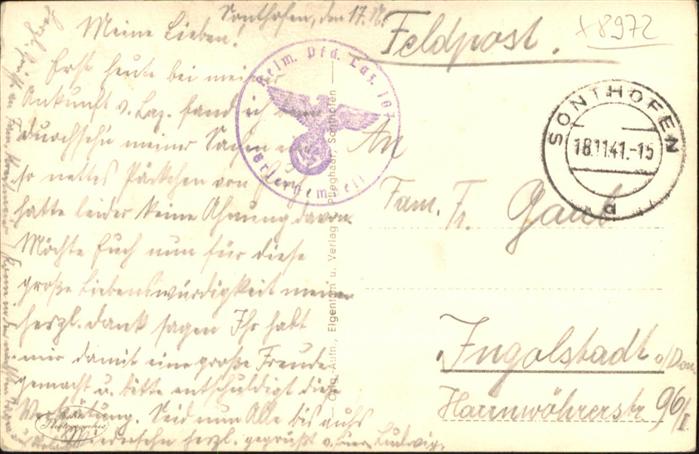 Sonthofen, den 17.11.
Meine Lieben.
Erst heute bei meiner
Ankunft v. Laz. fand ich beim
durchsehn meiner Sachen ein
so nettes Päckchen von Euch
hatte leider keine Ahnung davon.
Möchte Euch nun für diese
große Liebenswürdigkeit meinen
herzl. Dank sagen Ihr habt
mir damit eine große Freude
gemacht u. bitte entschuldigt diese
Verspätung. Seid nun Alle bis aufs
Wiedersehn herzl. gegrüßt v. Euer Ludwig.
Feldpost.
+8972
SONTHOFEN
18.11.41.-15
a
An
Fam. Fr. Gaul
Ingolstadt a/Don
Haunwöhrerstr 96/I
Orig. Aufn., Eigentum u. Verlag Sonthofen